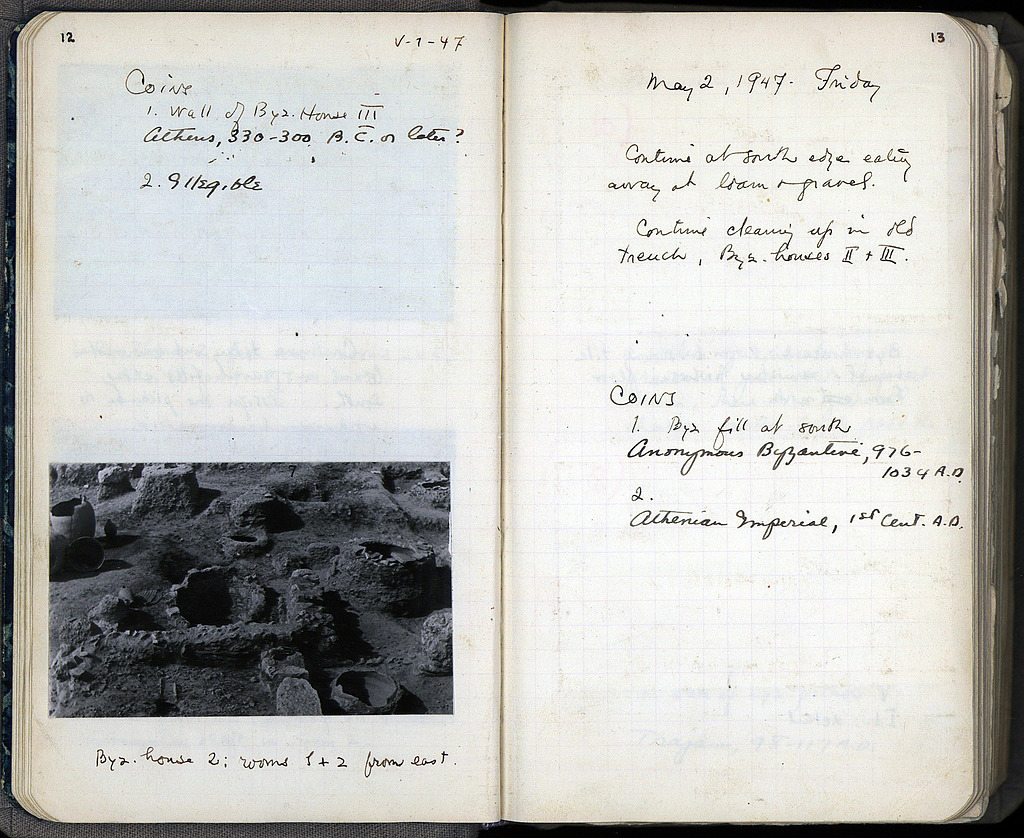 12
V-1-47
Coins
1. Wall of Byz. House III
Athens, 330-300 B.C. or later?
2. Illegible
Byz. house 2: rooms 1 + 2 from east.
13
May 2, 1947. Friday
Continue at south edge eating
away at loam + gravel.
Continue cleaning up in old
trench, Byz. houses II + III.
COINS
1. Byz fill at south
Anonymous Byzantine, 976-
1034 A.D.
2.
Athenian Imperial, 1st Cent. A.D.